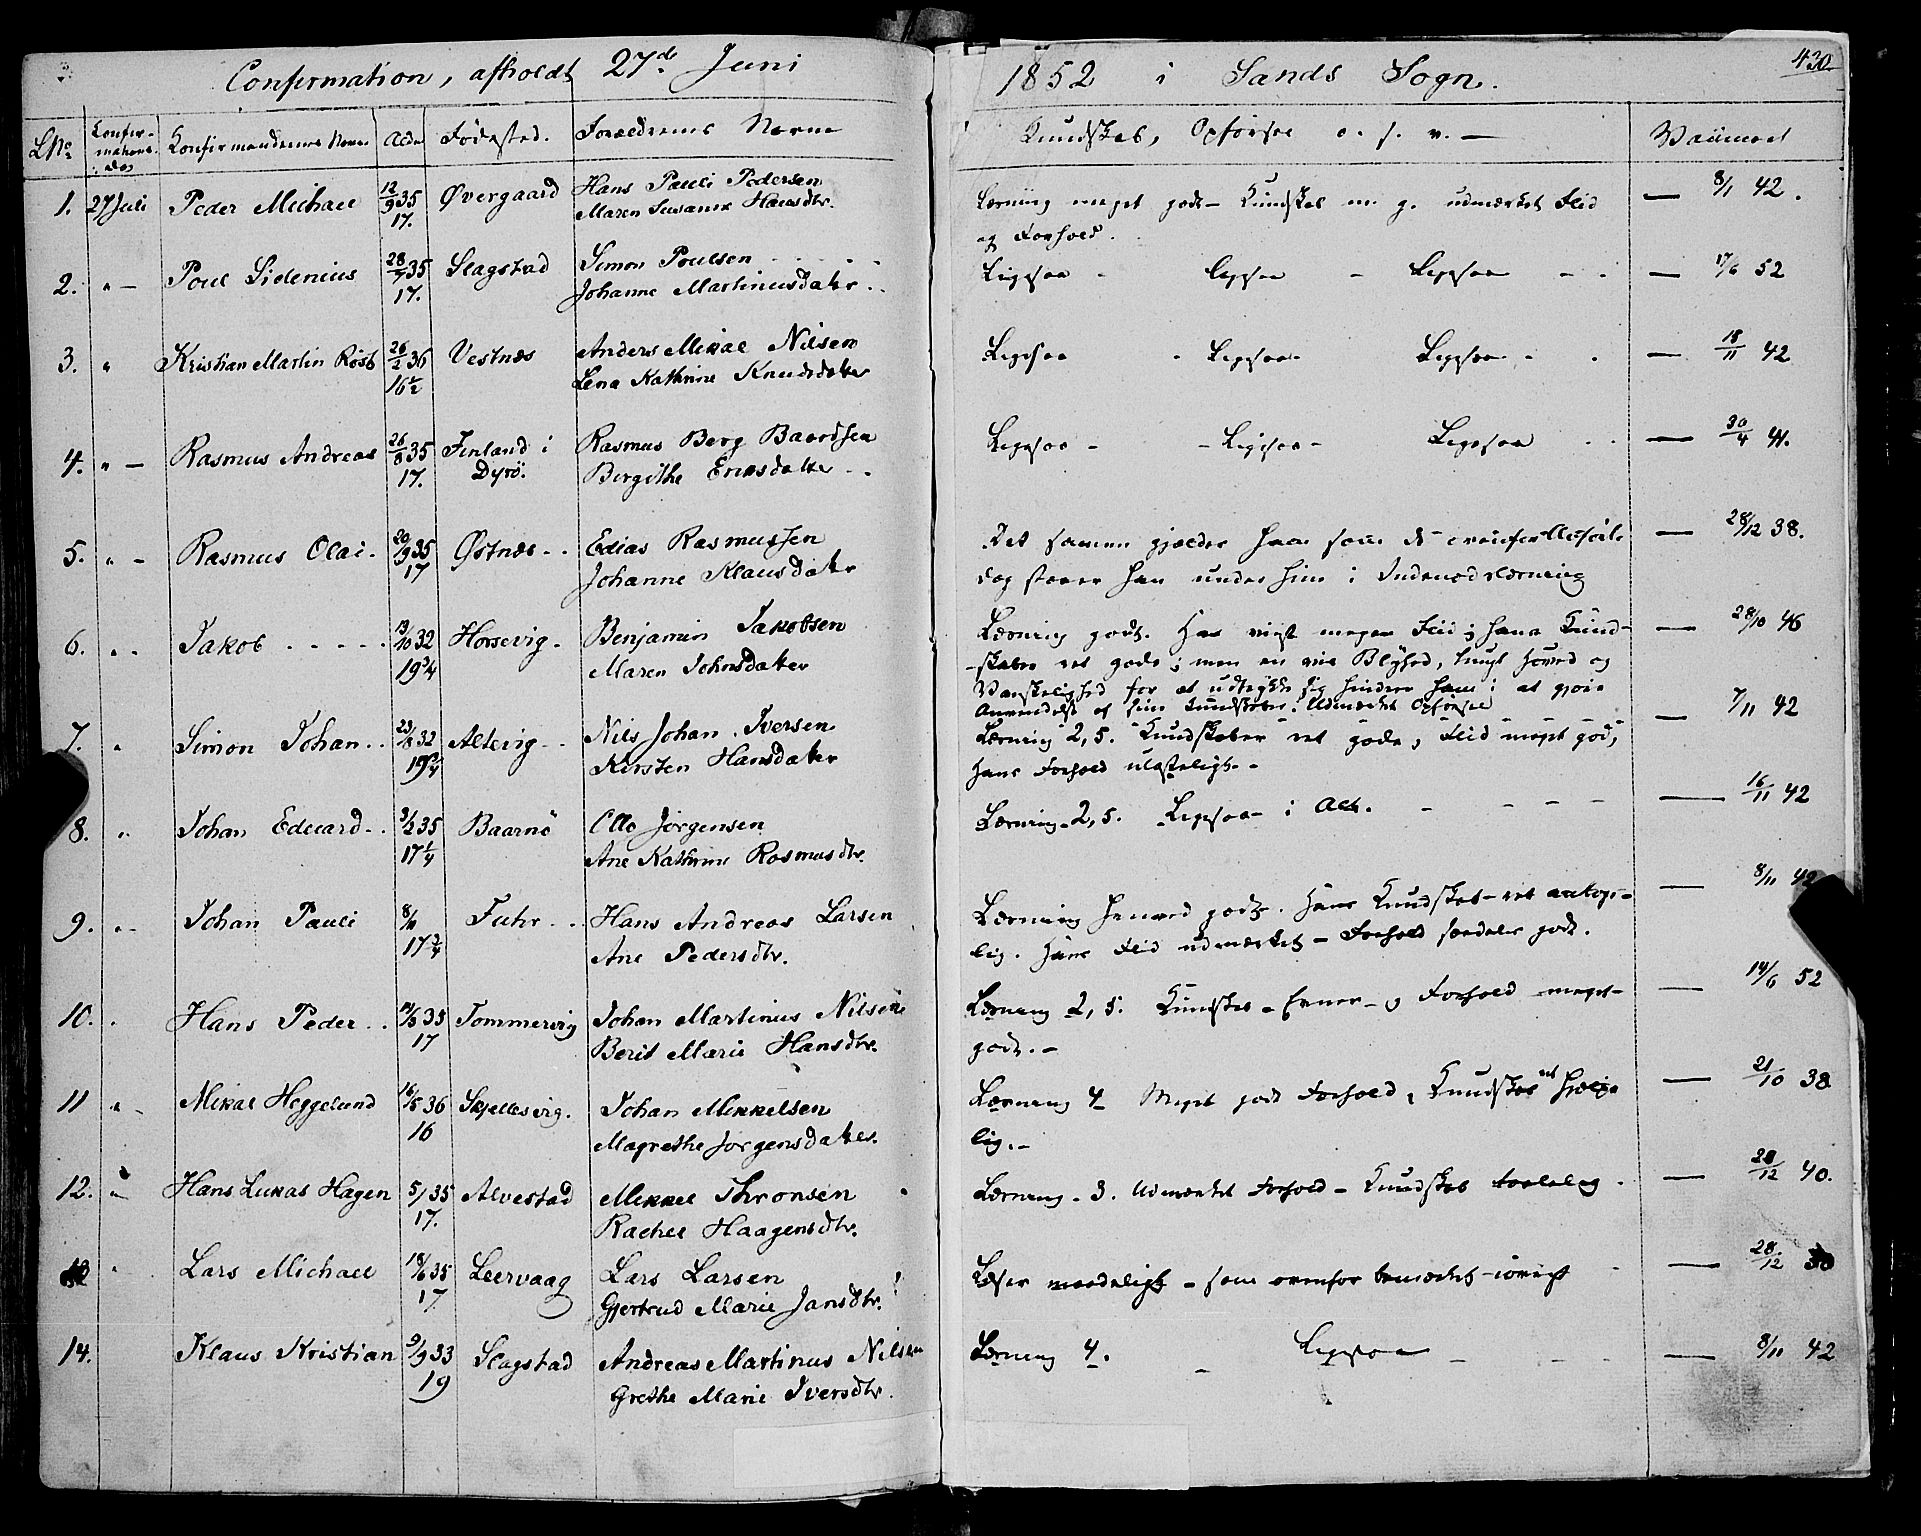 Confirmation, afholdt 27de Juni 1852 i Sands Sogn.
430
LNo Konfirmations Dag Konfirmandernes Navne Alder Fødested. Forældrenes Navne Kundskab, Opførsel o. s. v. — Vaccineret
1. 27 Juli Peder Michael 12/9 35 Øvergaard Hans Pauli Pedersen Læsning meget godt - Kundskab m. g. udmærket Flid — 8/11 42.
17. Maren Susanne Hansdtr. og Forhold.
2. " — Poul Sidenius 28/7 35 Slagstad Simon Poulsen Ligesaa - ligesaa - Ligesaa - - — 17/6 52
17. Johanne Martinusdater..
3. " Kristian Martin Rosb 26/2 36 Vestnæs Anders Mikal Nilsen Ligesaa - Ligesaa - Ligesaa - - — 18/11 42
16½ Lena Kathrine Knudsdater
4. " — Rasmus Andreas 26/8 35 Finland i Rasmus Berg Baardsen Ligesaa - - Ligesaa - Ligesaa - - — 30/4 41.
17. Dyrö. Birgithe Eriksdater - .
5. " - Rasmus Olai. 20/9 35 Østnæs - . Edias Rasmussen Det samme gjælder ham som de — 28/12 38.
17 Johanne Klausdater dog staaer han under hine i Indenadslæsning
6. . . Jakob - - - - - 13/10 32 Horsevig - Benjamin Jakobsen Læsning godt. Har viist megen Flid; hans Kund- — 28/10 46
19¾ Maren Johnsdater -skaber ret gode; men en vis Blyhed, tungt Hoved og
Vanskelighed for at udtrykke sig hindrer ham i at gjøre
Anvendelse af sine Kundskaber. Udmærket Opførsel
7. " Simon Johan .. 23/8 32 Altevig - . Nils Johan Iversen Læsning 2,5. Kundskaber ret gode, Flid meget god, — 7/11 42
19¾ Kirsten Hansdater hans Forhold ulasteligt. -
8. " Johan Edvard - . 3/2 35 Baarnö Ole Jörgensen Læsning - 2,5. Ligesaa - i Alt. - - - - — 16/11 42
17¼ Ane Kathrine Rasmusdtr.
9. " - Johan Pauli 8/11 Fuhr - . Hans Andreas Larsen Læsning godt. Hans Kundskab - ret antage- — 8/11 42
17¾ Ane Pedersdtr. lig. Hans Flid udmærket - Forhold særdeles godt.
10. . Hans Peder .. 35 Tommervig Johan Martinus Nilsen Læsning 2,5. Kundskab - Evner - og Forhold meget — 14/6 52
17 Berit Marie Hansdtr. godt. -
11 " - Mikal Heggelund 16/5 36 Skjellesvig. Johan Mikkelsen Læsning 4 Meget godt Forhold, Kundskab ret — 21/10 38
16 Magrethe Jorgensdater. lig. -
12. " Hans Lukas Hagen 5/1 35 Alvestad Mikkel Thronsen Læsning - 3. Udmærket Forhold - Kundskab taalelig — 28/12 40.
17. Rachel Haagensdtr.
13 " Lars Michael 18/6 35 Leervaag Lars Larsen Læser maadeligt - som ovenfor bemærket - iøvrigt — 28/12 38
17 Gjertrud Marie Jansdtr.
14. Klaus Kristian 9/9 33 Slagstad Andreas Martinus Nilsen Læsning 4. - Ligesaa - - - — 8/11 42
19 Grethe Marie Iversdtr.